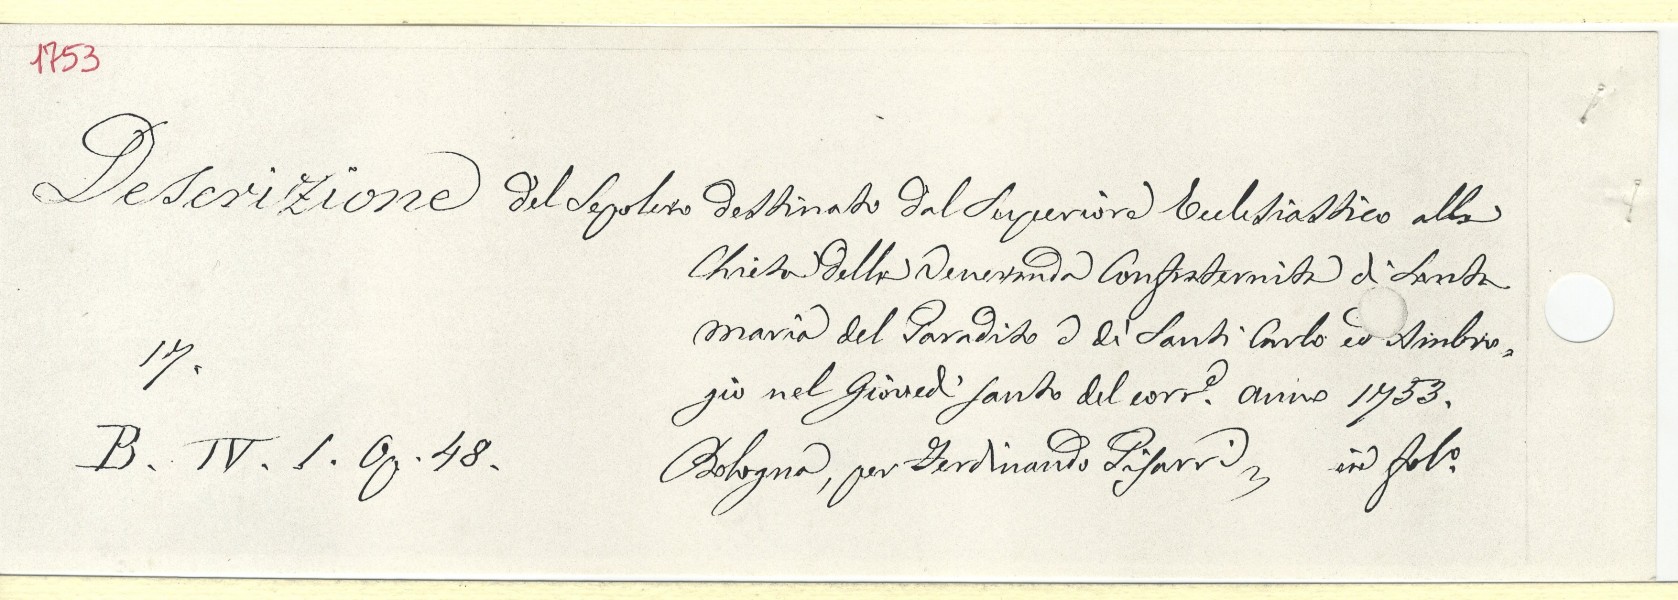 1753
Descrizione del Sepolcro destinato dal Superiore Ecclesiastico alla
Chiesa della Veneranda Confraternita di Santa
Maria del Paradiso e di Santi Carlo ed Ambro-
gio nel Giovedì Santo del corr.e anno 1753.
17.
B. IV. 1. Op. 48.
Bologna, per Ferdinando Pisarri, in fol.o